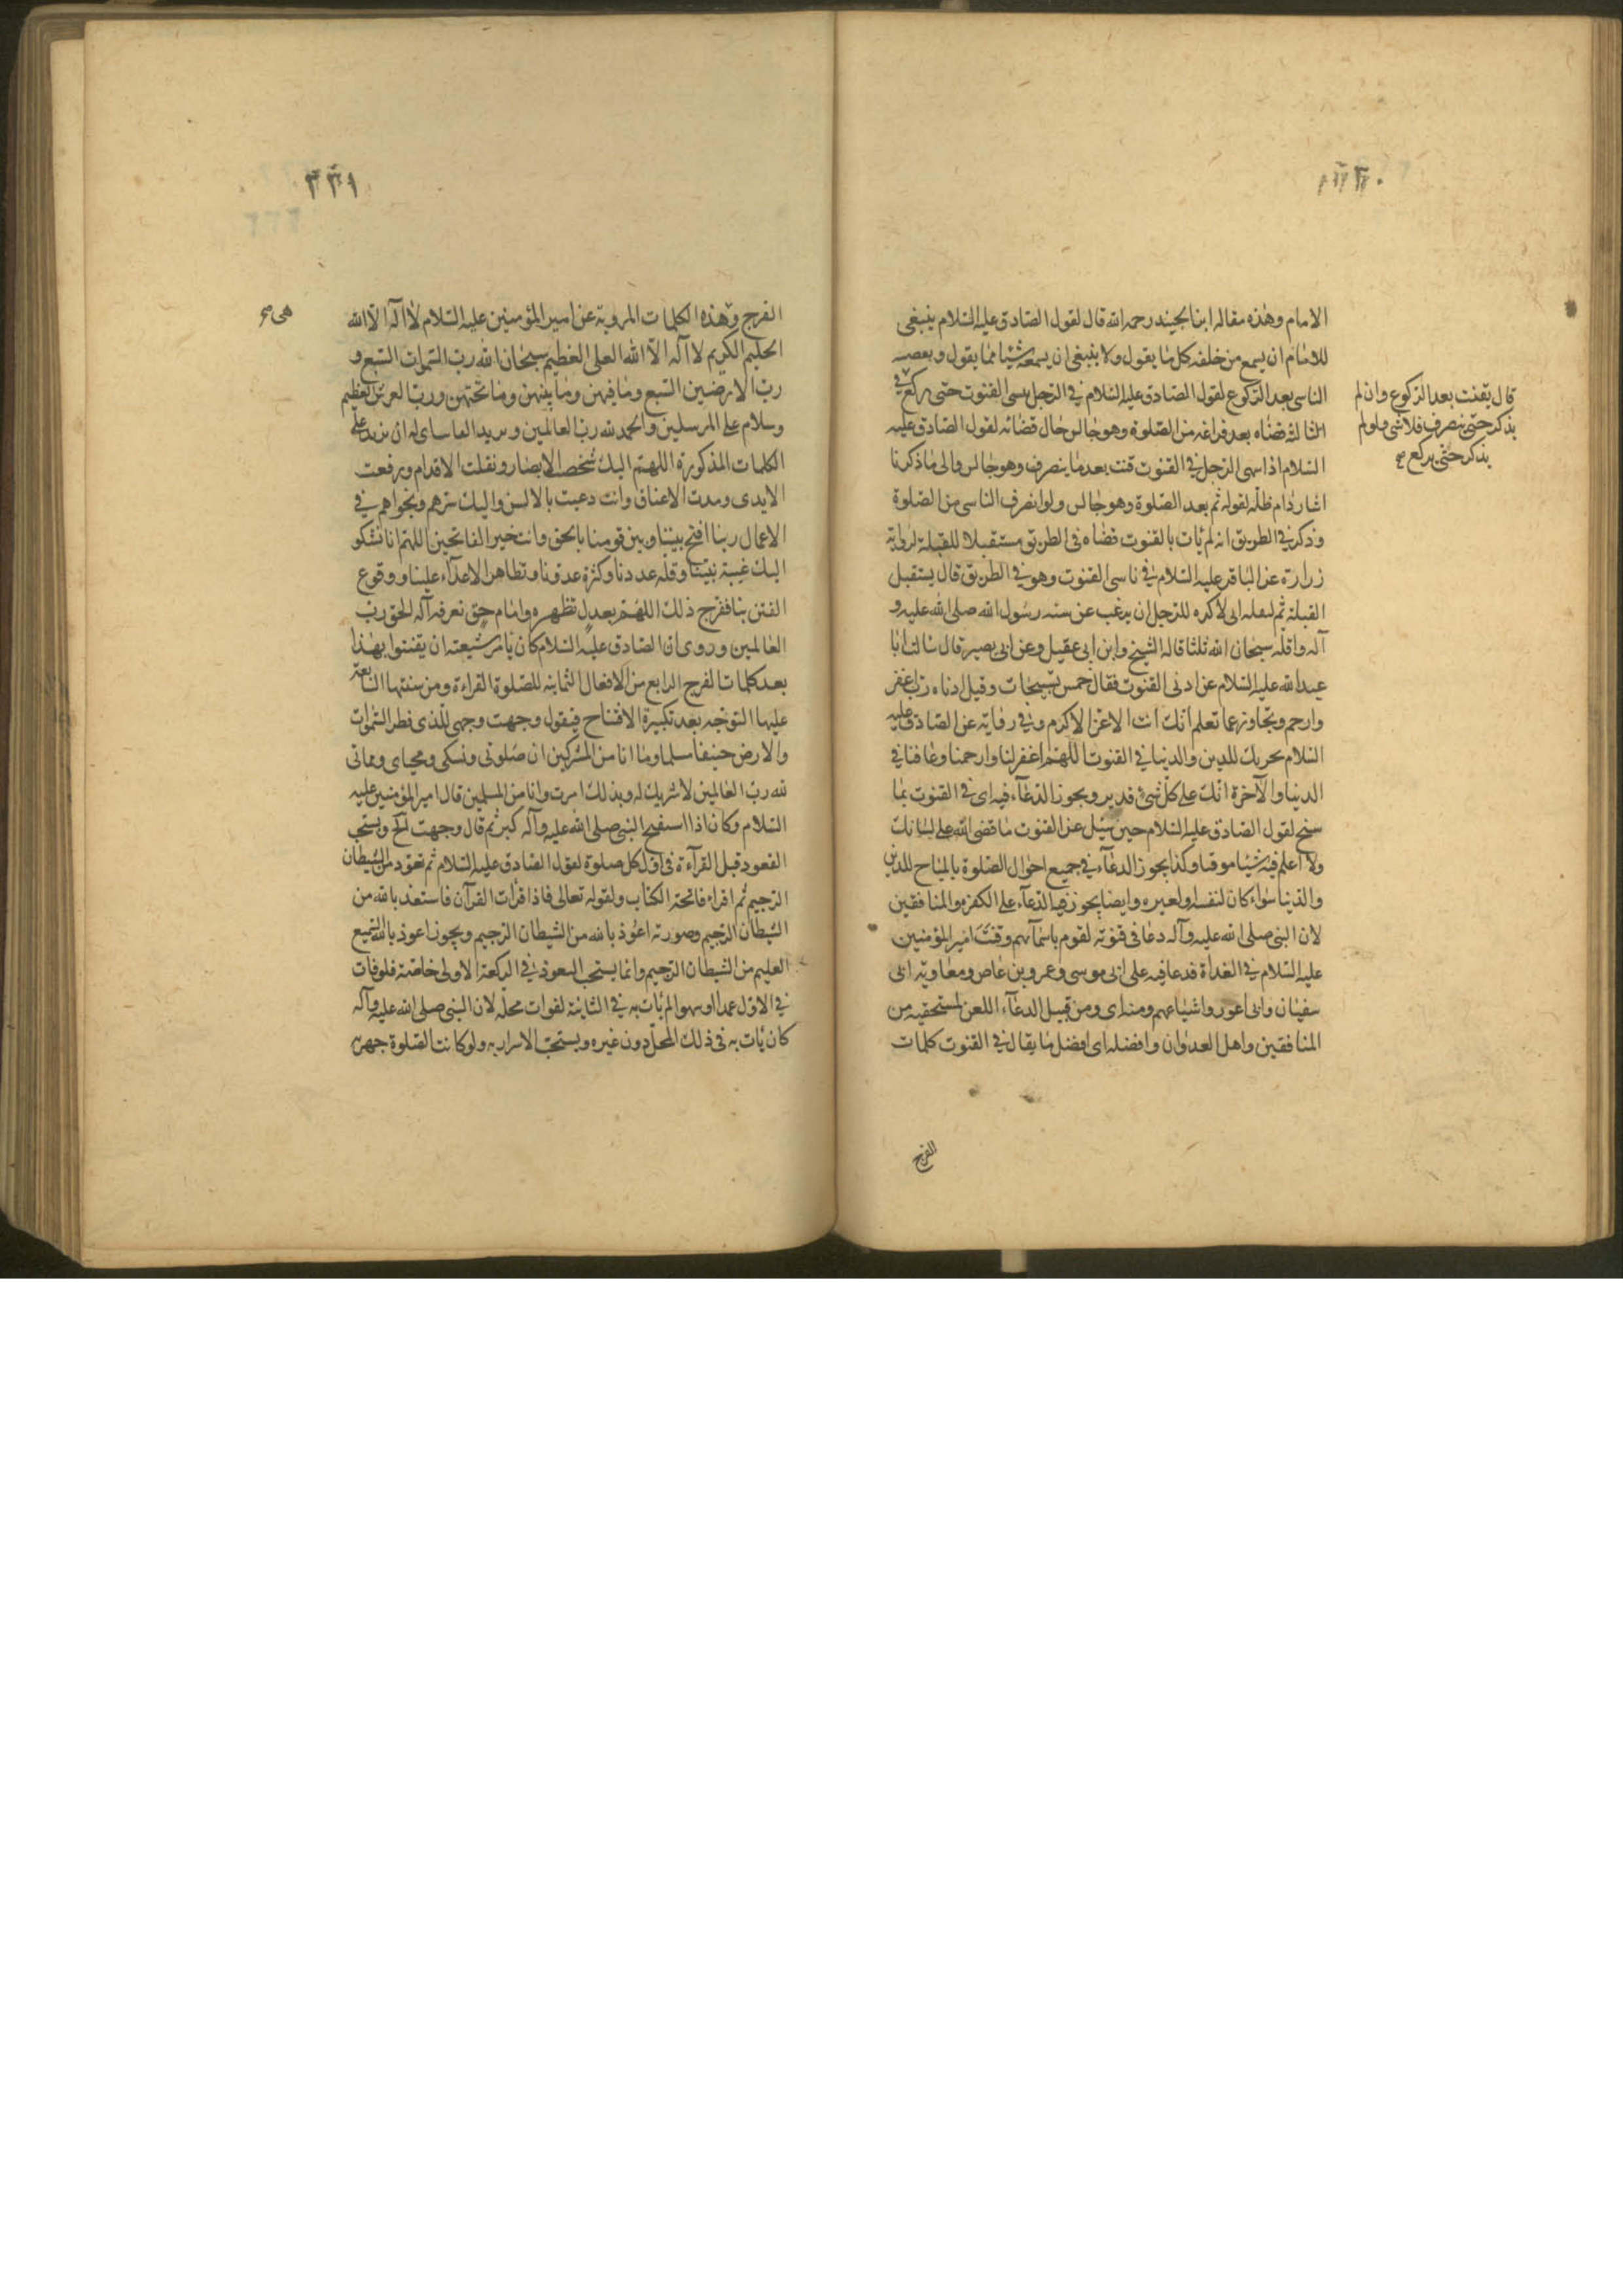 ٣٣٠
الامام وهذه مقاله ابن الجنيد رحمه الله قال لقول الصادق عليه السلام ينبغى
للامام ان يسمع من خلفه كل ما يقول ولا ينبغى ان يسمعه شيئا مما يقول و
الناسى بعد الركوع لقول الصادق عليه السلام فى الرجل ينسى القنوت حتى يركع
قال يقنت بعد الركوع وان لم
يذكر حتى ينصرف فلا شى ولو لم
يذكر حتى يركع صح
فى الثالثه قضاه بعد فراغه من الصلوة وهو جالس حال قضائه لقول الصادق عليه
السلام اذا سهى الرجل فى القنوت قنت بعد ما ينصرف وهو جالس والى ما ذكرنا
اشار دام ظله لقوله ثم بعد الصلوة وهو جالس ولو انصرف الناسى من الصلوة
وذكر فى الطريق انه لم يأت بالقنوت قضاه فى الطريق مستقبلا للقبلة لرواية
زرارة عن الباقر عليه السلام فى ناسى القنوت وهو فى الطريق قال يستقبل
القبلة ثم ليقله انى لأكره للرجل ان يرغب عن سنه رسول الله صلى الله عليه و
آله واقله سبحان الله ثلثا قاله الشيخ وابن ابى عقيل وعن ابى بصير قال سالت ابا
عبد الله عليه السلام عن ادنى القنوت فقال خمس تسبيحات وقيل ادناه رب اغفر
وارحم وتجاوز عما تعلم انك انت الاعز الاكرم وفى رواية عن الصادق عليه
السلام يجزيك للدين والدنيا فى القنوت اللهم اغفر لنا وارحمنا وعافنا فى
الدنيا والآخرة انك على كل شئ قدير ويجوز الدعآء فيه اى فى القنوت بما
سنح لقول الصادق عليه السلام حين سئل عن القنوت ما قضى الله على لسانك
ولا اعلم فيه شيئا موقتا وكذا يجوز الدعآء فى جميع احوال الصلوة بالمباح للدين
والدنيا سواء كان لنفسه او لغيره وايضا يجوز فيه الدعآء على الكفرة والمنافقين
لان النبى صلى الله عليه وآله دعا فى قنوته لقوم باسمآئهم وقنت امير المؤمنين
عليه السلام فى الغداة فدعا فيه على ابى موسى وعمرو بن عاص ومعاوية ابى
سفيان وابى اعور واشياعهم ومنداى ومن قبيل الدعآء اللعن لمستحقيه من
المنافقين واهل العدوان وافضله اى افضل ما يقال فى القنوت كلمات
الفرج
٣٣١
الفرج وهذه الكلمات المروية عن امير المؤمنين عليه السلام لا اله الا الله
هى صح
الحليم الكريم لا اله الا الله العلى العظيم سبحان الله رب السموات السبع و
رب الارضين السبع وما فيهن وما بينهن وما تحتهن ورب العرش العظيم
وسلام على المرسلين والحمد لله رب العالمين و اى له ان يزيد على
الكلمات المذكورة اللهم اليك شخصت الابصار ونقلت الاقدام ورفعت
الايدى ومدت الاعناق وانت دعيت بالالسن واليك سرهم ونجواهم فى
الاعمال ربنا افتح بيننا وبين قومنا بالحق وانت خير الفاتحين اللهم انا نشكو
اليك غيبة نبينا وقلة عددنا وكثرة عدونا وتظاهر الاعدآء علينا ووقوع
الفتن بنا ففرج ذلك اللهم بعدل تظهره وامام حق نعرفه آله الحق رب
العالمين وروى ان الصادق عليه السلام كان يأمر شيعته ان يقنتوا بهذا
بعد كلمات الفرج الرابع من الافعال الثمانية للصلوة القراءة ومن سننها السابعة
عليها التوجه بعد تكبيرة الافتتاح فيقول وجهت وجهى للذى فطر السموات
والارض حنيفا مسلما وما انا من المشركين ان صلوتى ونسكى ومحياى ومماتى
لله رب العالمين لا شريك له وبذلك امرت وانا من المسلمين قال امير المؤمنين عليه
السلام وكان اذا استفتح النبى صلى الله عليه وآله كبر ثم قال وجهت الخ ويستحب
التعوذ قبل القرآءة فى اول كل صلوة لقول الصادق عليه السلام ثم تعوذ من الشيطان
الرجيم ثم اقراء فاتحة الكتاب ولقوله تعالى فاذا قرأت القرآن فاستعذ بالله من
الشيطان الرجيم وصورته اعوذ بالله من الشيطان الرجيم ويجوز اعوذ بالله السميع
العليم من الشيطان الرجيم وانما يستحب التعوذ فى الركعة الاولى خاصة فلو فات
فى الاول عمدا او سهوا لم يأت به فى الثانية لفوات محله لان النبى صلى الله عليه وآله
كان يأت به فى ذلك المحل دون غيره ويستحب الاسرار به ولو كانت الصلوة جهرية